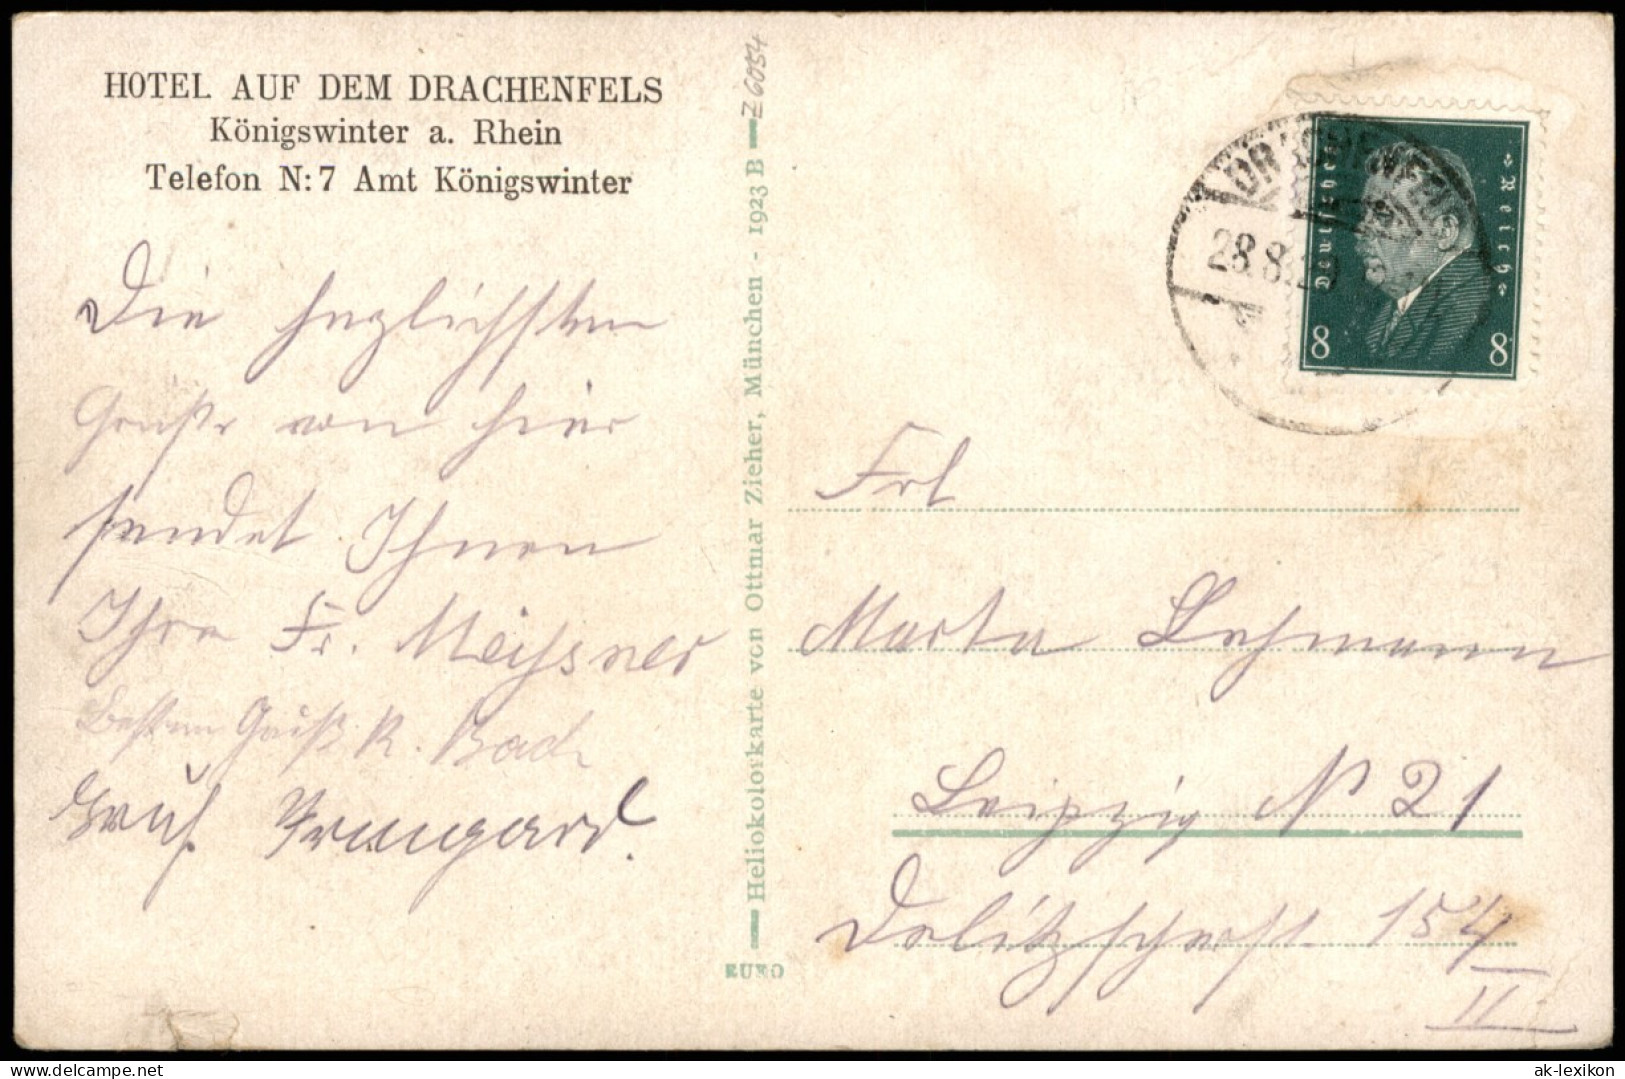 HOTEL AUF DEM DRACHENFELS
Königswinter a. Rhein
Telefon N: 7 Amt Königswinter
Die herzlichsten
Grüße von hier
sendet Ihnen
Ihre Fr. Meißner
Besten Gruß R. Bach
Gruß Irmgard.
Heliokolorkarte von Ottmar Zieher, München - 1923 B
Z 6054
EUKO
DRACHENFELS
28.8.29
Deutsches Reich
8 8
Frl
Marta Lehmann
Leipzig N 21
Delitzscherst 154
II
ak-lexikon